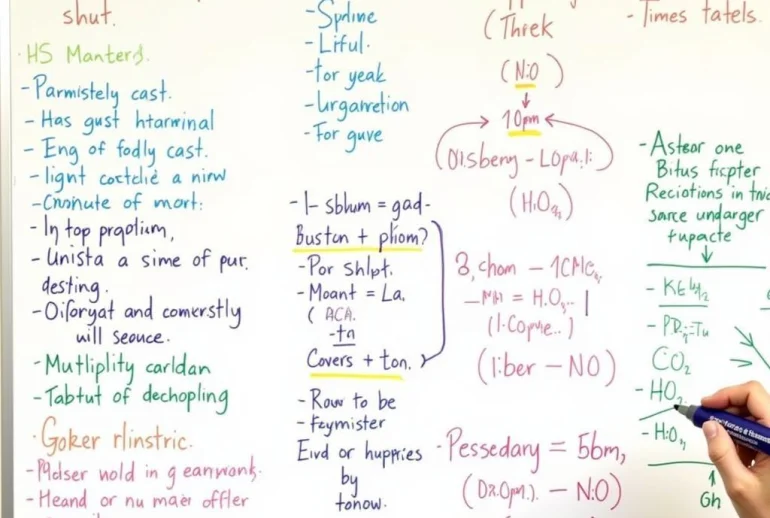 shut.
HS Manterd.
- Parmistely cast.
- Has gust htarwinal
- Eng of fodly cast.
- lignt coctclie a nirw
- Cnonute of mort:
- In top prqolium,
- Unista a sime of pur.
desting.
- Oiforyat and comerstly
will seouce.
- Mutliplity carldan
- Tabtut of dechopling
Goker rlinstric.
- Heand or nu maer offler
- Spdine
- Liful.
- for yeak
- Urganretion
- For guve
- 1- sblum = gad-
Buston + pliom?
- Por Shlpt.
- Moant = La,
( ACA.
- tn
Covers + ton.
- Row to be
- Feymister
Eivd or huppries
by
tonow.
(Threk
(N:O)
10pm
(Oisbeny - LOpa.l:)
(HiOq,)
3,chom - 1CMC,
= H.O,.. |
(1-Copvie..)
(1:ber - NO)
- Pessedary = 56m,
(Dz.Opm.). - N:O)
- Times tatels.
- Asteor one
Bitus ficpter
Reciotions in
sarce undarger
tupacte
CO2
- HO2
- H:O,
Gh